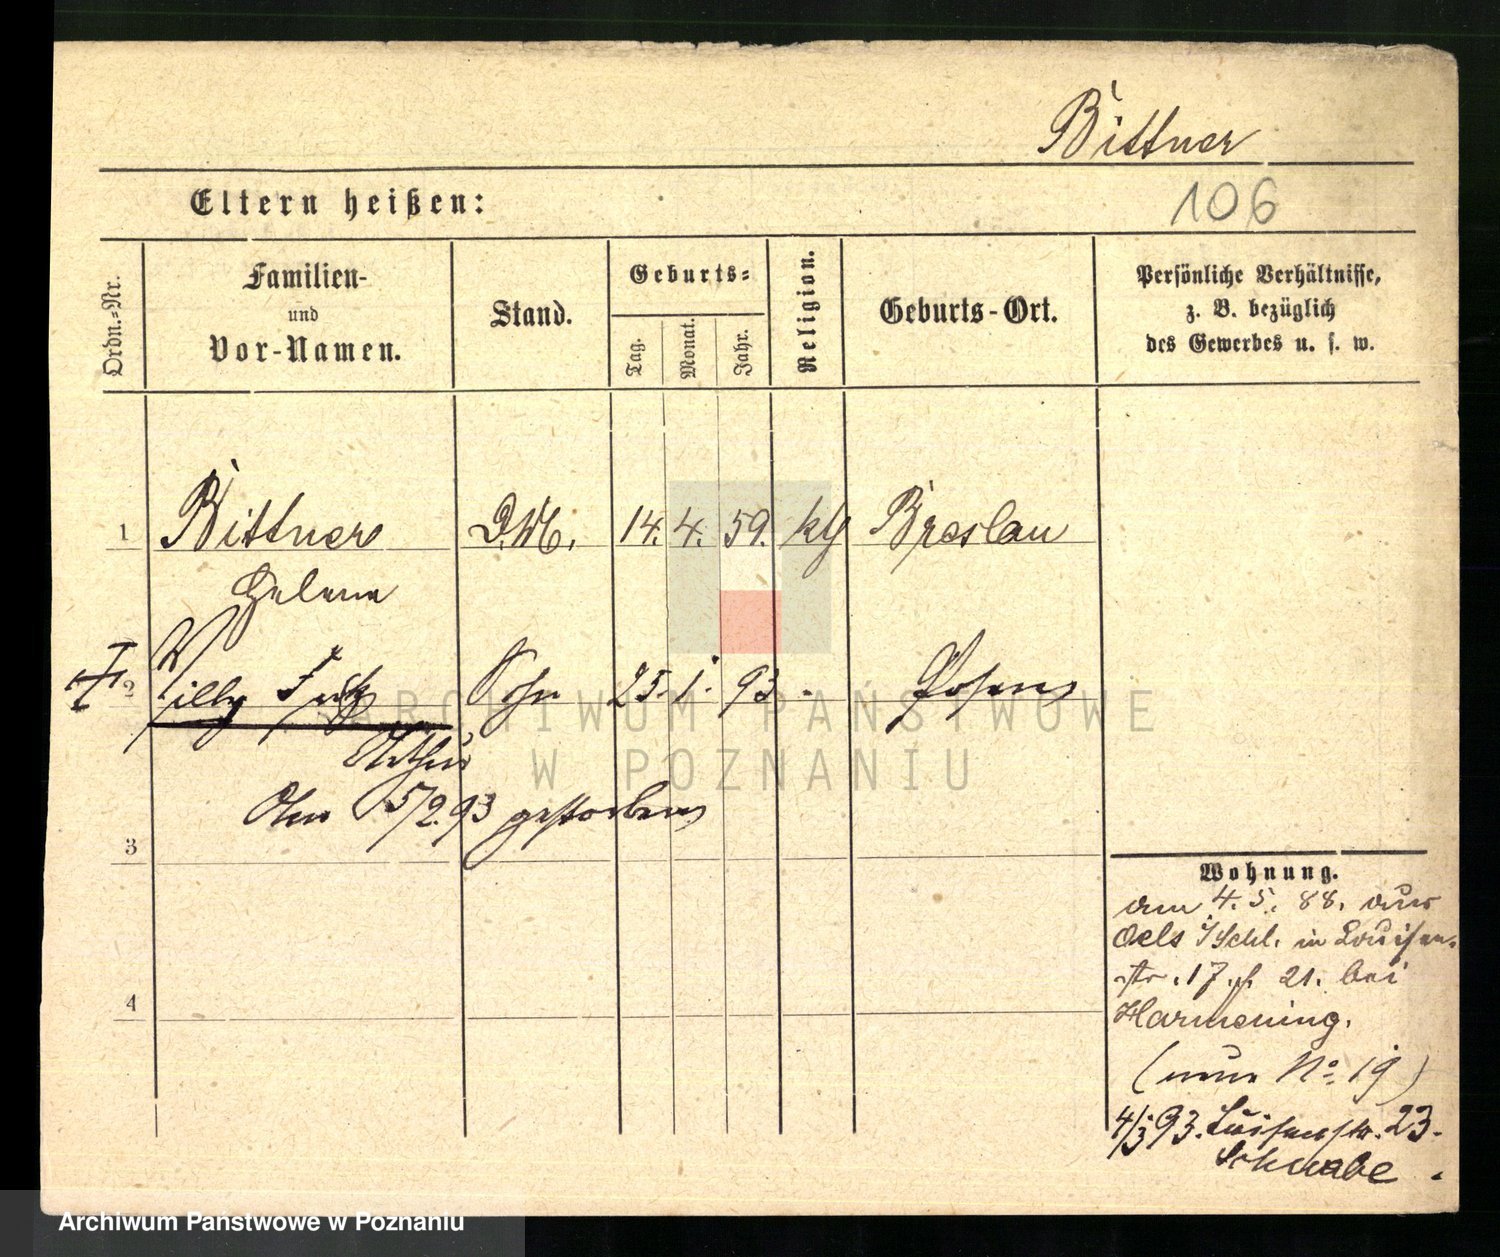 Bittner
Eltern heißen:
106
Ordn.-Nr.
Familien-
und
Vor-Namen.
Stand.
Geburts-
Tag.
Monat.
Jahr.
Religion.
Geburts-Ort.
Persönliche Verhältnisse,
z. B. bezüglich
des Gewerbes u. s. w.
1 Bittner 14. 4. 59. kth Breslau
Helene
2 Willy Fritz Sohn 25. 1. 93 - Posen
Arthur
Am 5/2.93 gestorben
3
4
Wohnung.
am 4. 5. 88. aus
Oels i/Schl. in Louisen-
str. 17 21. bei
Harmening.
(neue No. 19)
4/3 93. Luisenstr. 23.
Schwabe
ARCHIWUM PAŃSTWOWE
W POZNANIU
Archiwum Państwowe w Poznaniu